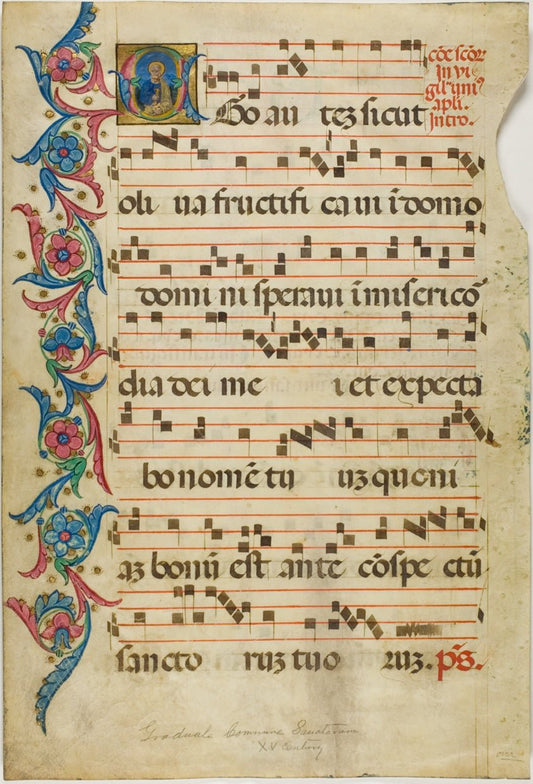 Go au tez sicut
cõe scõr
in vi
gil' uni⁹
apli.
intro.
oli ua fructifi ca ui ĩ domo
domi ni speraui ĩ misericõ
dia dei me i et expecta
bo nomẽ tu uz quoni
az bonũ est ante cõspe ctũ
sancto ruz tuo ruz. ps.
Graduale Commune Sanctorum
XV Century
over